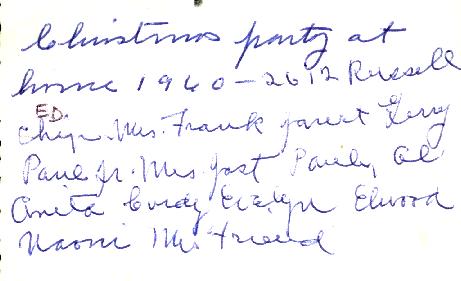 Christmas party at
home 1960-2612 Russell
ED.
Mrs. Frank Janet Gerry
Paul Jr. Mrs Jost Paul, Al
Anita Cordy Evelyn Elwood
Naomi Mrs Friend